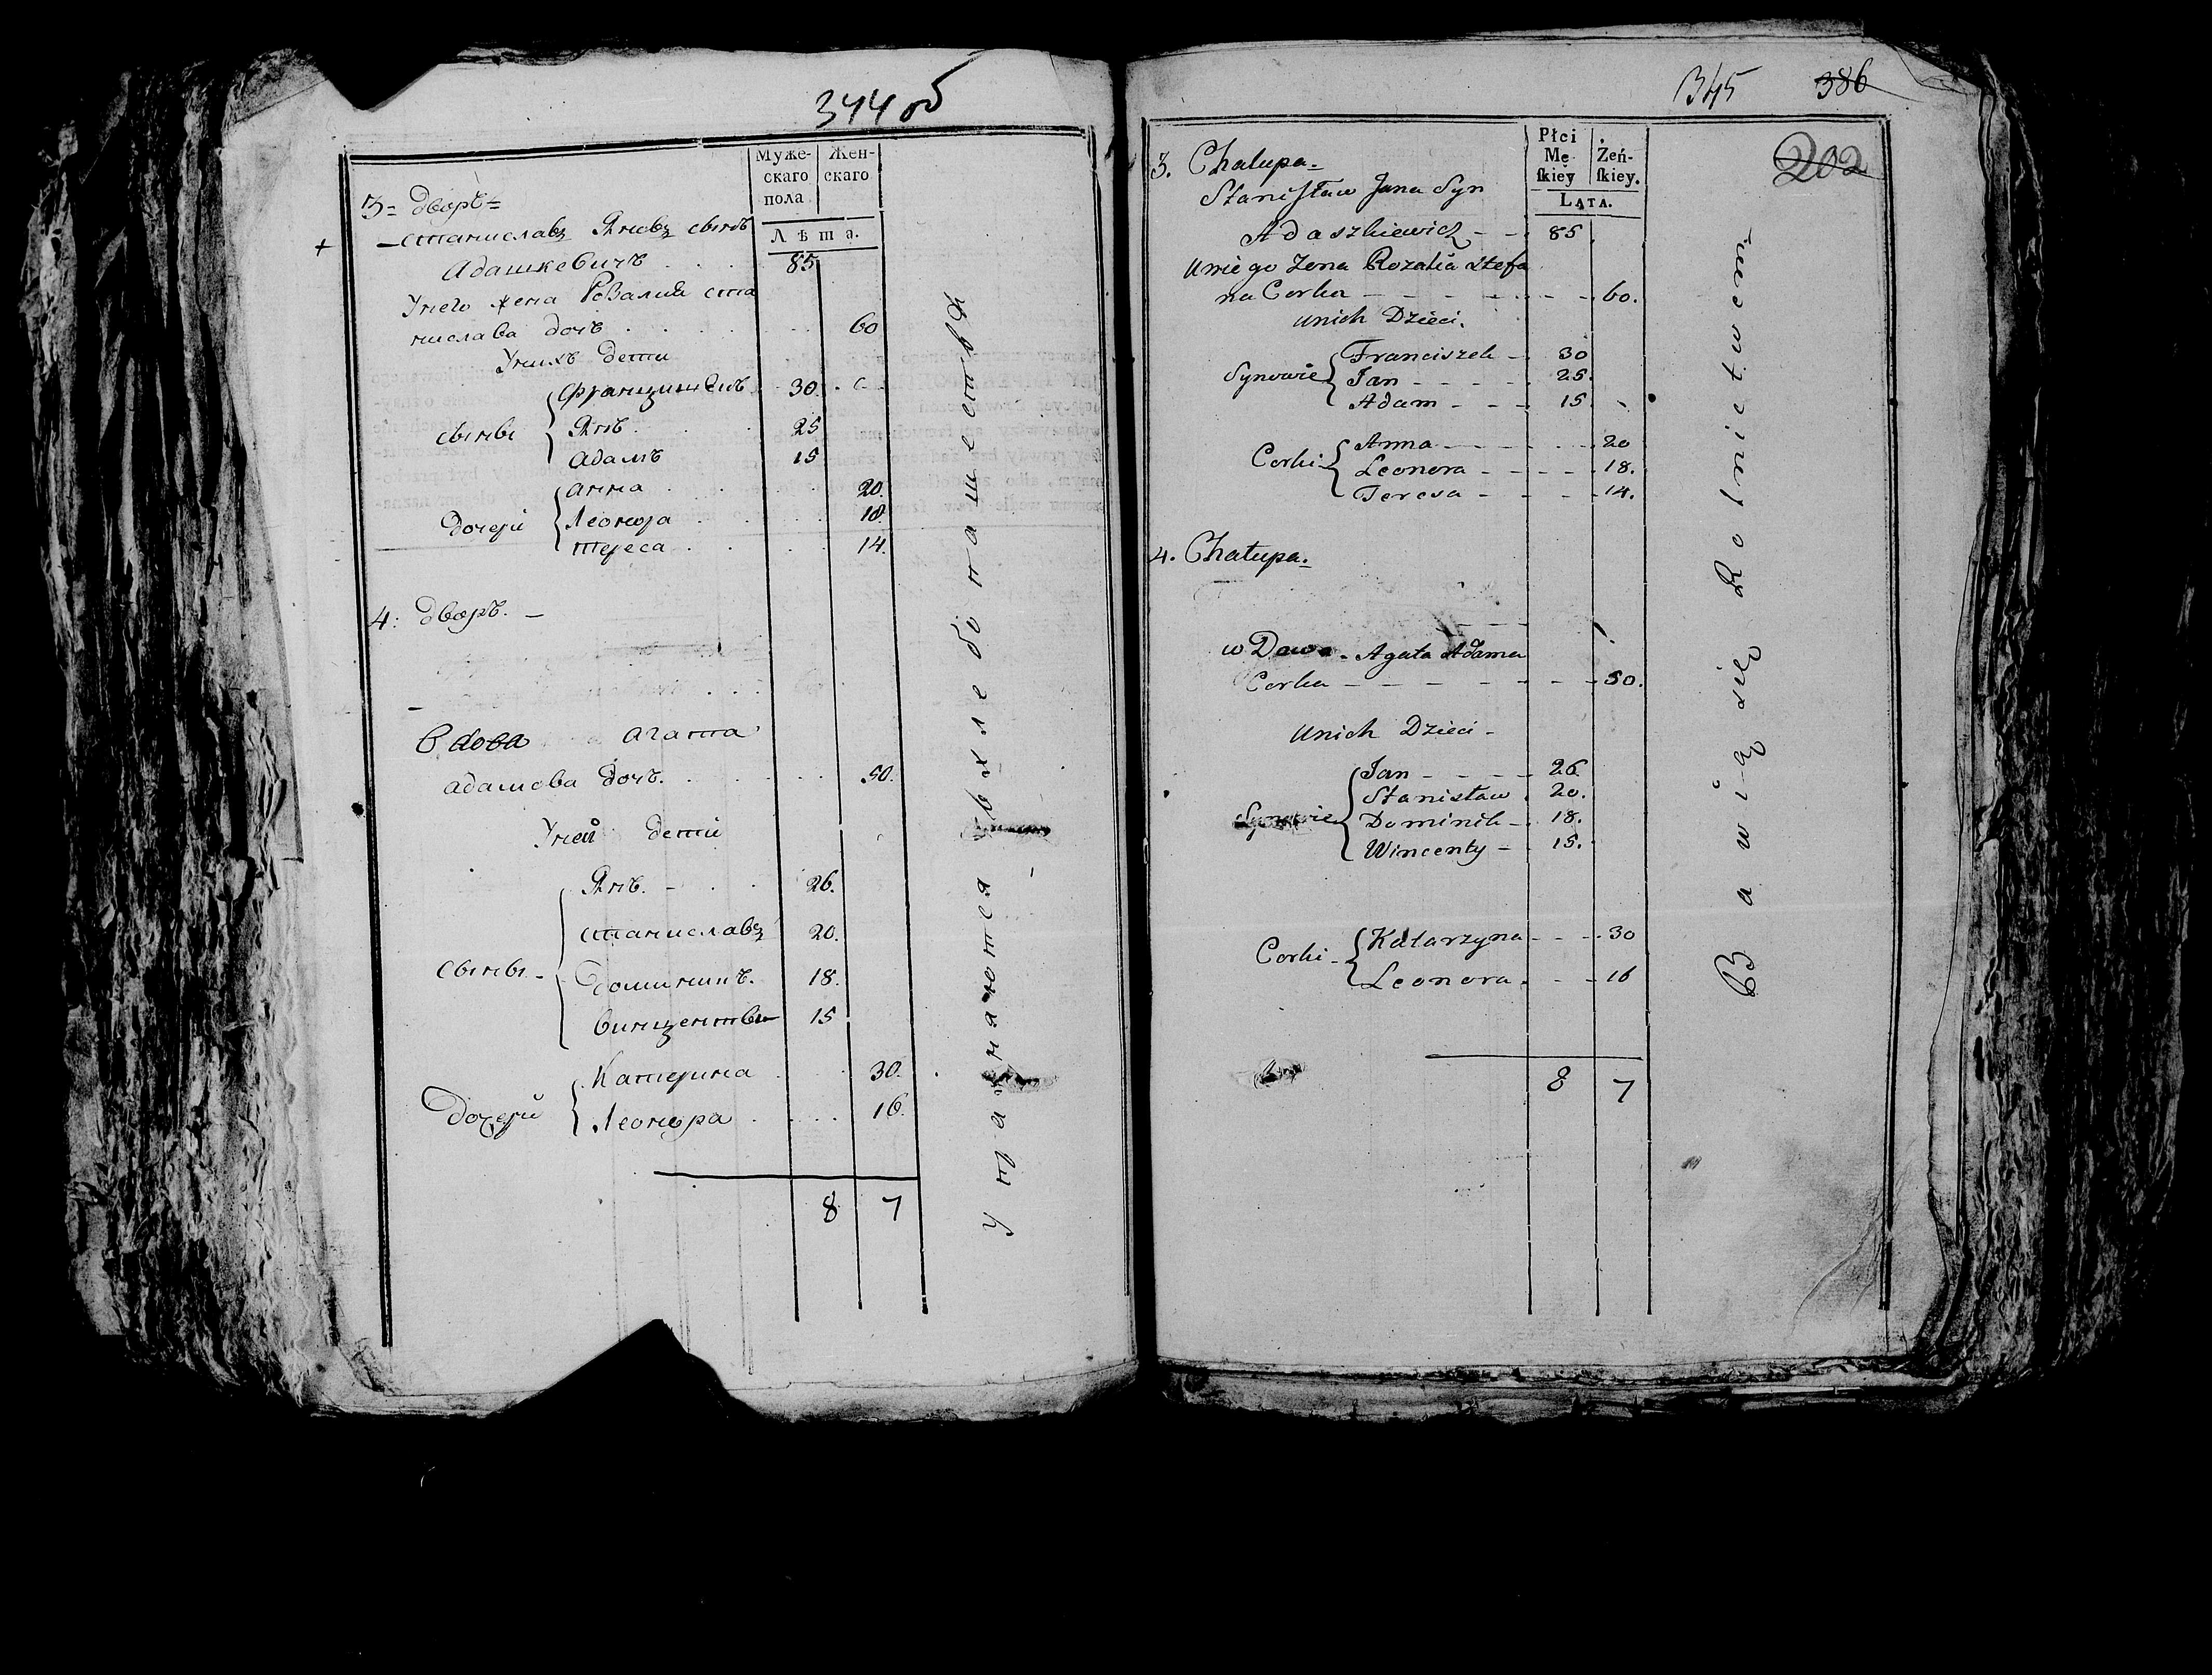 344 об
Муже-
скаго
пола
Жен-
скаго
Лѣта.
3 = дворъ =
Станиславъ Яновъ сынъ
Адашкевичъ . . . 85
У него жена Розалия Ста
нислава дочь . . . . 60
У нихъ дети
сыны
Францишекъ 30.
Янъ . . . . 25
Адамъ 15
дочери
Анна . . . . 20.
Леонора . . . . 18.
Тереса . . . . 14.
4: дворъ. –
Вдова Агата
Адамова дочь. . . . . 50.
У ней дети
сыны –
Янъ. – . . 26.
Станиславъ 20.
Доминикъ. 18.
Винценты 15
дочери
Катерина . . . 30.
Леонора . . . . 16.
8 7
упражняются въ хлебопашествѣ
345 386
202
Płci
Mę-
ſkiey
Żeń-
ſkiey.
Lata.
3. Chalupa =
Stanisław Jana Syn
Adaszkiewicz - - 85
u niego Zona Rozalia Stefa
na Corka - - - - - - 60.
u nich Dzieci.
Synowie
Franciszek - 30
Jan - - - - 25.
Adam - - - 15
Corki
Anna - - - - - 20
Leonora - - - - 18.
Teresa - - - - 14.
4. Chałupa =
wDowa - Agata Adama
Corka - - - - - - - 50.
u nich Dzieci -
Synowie
Jan - - - - 26
Stanisław 20.
Dominik - 18.
Wincenty - 15.
Corki -
Katarzyna - - - 30
Leonora . - - 16
8 7
Bawią się Rolnictwem